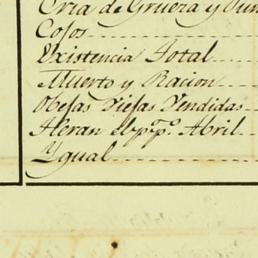 Cria de Gruera y
Cojos
Existencia Total
Muerto y Racion
Obejas Viejas Vendidas
Heran Abril
Ygual